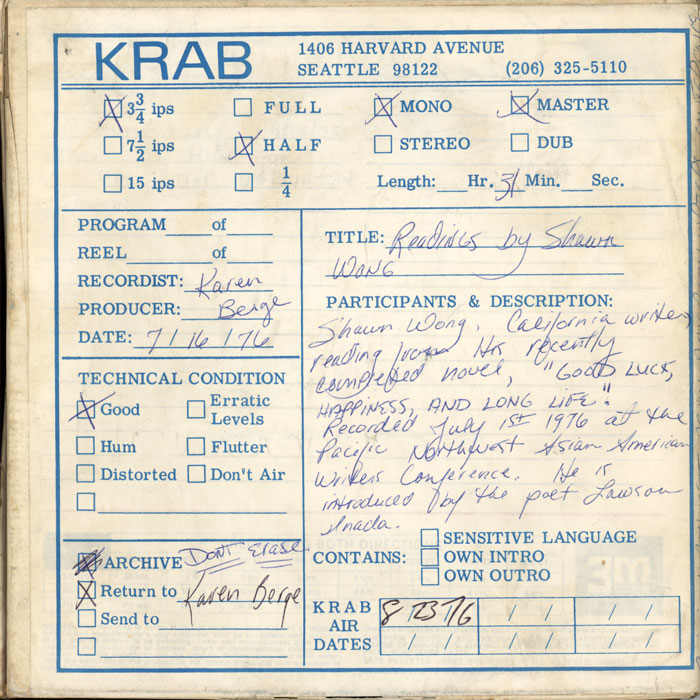 KRAB
1406 HARVARD AVENUE
SEATTLE 98122 (206) 325-5110
3 3/4 ips FULL MONO MASTER
7 1/2 ips HALF STEREO DUB
15 ips 1/4 Length: Hr. 31 Min. Sec.
PROGRAM of
REEL of
RECORDIST: Karen
PRODUCER: Berge
DATE: 7/16/76
TECHNICAL CONDITION
Good Erratic Levels
Hum Flutter
Distorted Don't Air
ARCHIVE DON'T ERASE
Return to Karen Berge
Send to
TITLE: Readings by Shawn
WONG
PARTICIPANTS & DESCRIPTION:
Shawn Wong, California writer,
reading from his recently
completed novel, "GOOD LUCK,
HAPPINESS, AND LONG LIFE."
Recorded July 1st 1976 at the
Pacific Northwest Asian American
Writers Conference. He is
introduced by the poet Lawson
Inada.
CONTAINS: SENSITIVE LANGUAGE
OWN INTRO
OWN OUTRO
KRAB AIR DATES 8/23/76 / / / /
/ / / / / /
3m